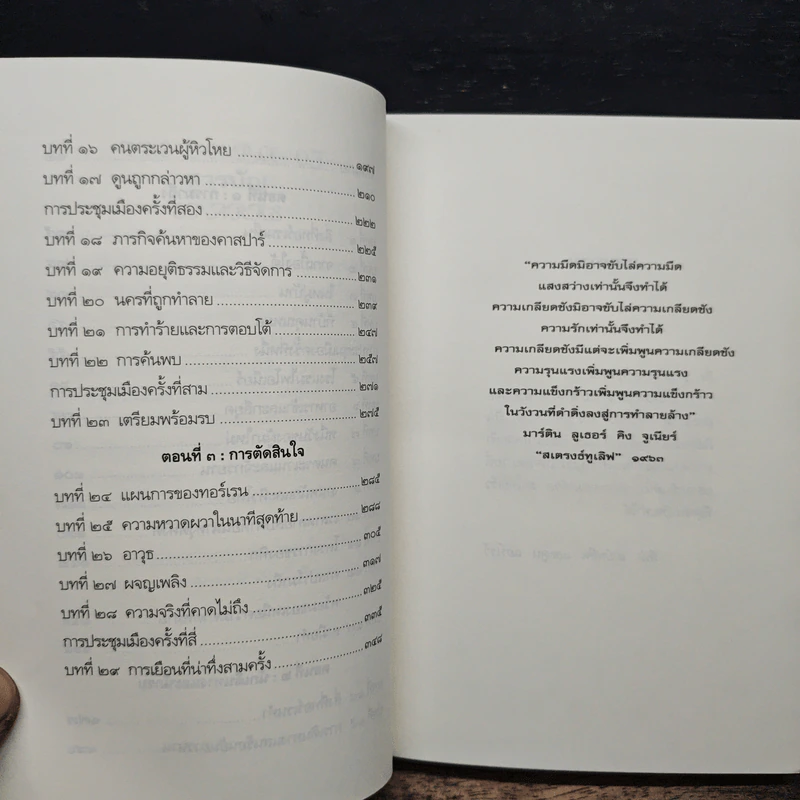 บทที่ ๑๖ คนตระเวนผู้หิวโหย ๑๙๗
บทที่ ๑๗ ดูนถูกกล่าวหา ๒๑๐
การประชุมเมืองครั้งที่สอง ๒๒๒
บทที่ ๑๘ ภารกิจค้นหาของคาสปาร์ ๒๒๕
บทที่ ๑๙ ความอยุติธรรมและวิธีจัดการ ๒๓๑
บทที่ ๒๐ นครที่ถูกทำลาย ๒๓๙
บทที่ ๒๑ การทำร้ายและการตอบโต้ ๒๔๗
บทที่ ๒๒ การค้นพบ ๒๕๗
การประชุมเมืองครั้งที่สาม ๒๗๑
บทที่ ๒๓ เตรียมพร้อมรบ ๒๗๕
ตอนที่ ๓ : การตัดสินใจ
บทที่ ๒๔ แผนการของทอร์เรน ๒๘๕
บทที่ ๒๕ ความหวาดผวาในนาทีสุดท้าย ๒๘๘
บทที่ ๒๖ อาวุธ ๓๐๕
บทที่ ๒๗ ผจญเพลิง ๓๑๗
บทที่ ๒๘ ความจริงที่คาดไม่ถึง ๓๒๕
การประชุมเมืองครั้งที่สี่ ๓๓๕
บทที่ ๒๙ การเยือนที่น่าทึ่งสามครั้ง ๓๔๘
“ความมืดมิอาจขับไล่ความมืด
แสงสว่างเท่านั้นจึงทำได้
ความเกลียดชังมิอาจขับไล่ความเกลียดชัง
ความรักเท่านั้นจึงทำได้
ความเกลียดชังมีแต่จะเพิ่มพูนความเกลียดชัง
ความรุนแรงเพิ่มพูนความรุนแรง
และความแข็งกร้าวเพิ่มพูนความแข็งกร้าว
ในวังวนที่ดำดิ่งลงสู่การทำลายล้าง”
มาร์ติน ลูเธอร์ คิง จูเนียร์
“สเตรงธ์ทูเลิฟ” ๑๙๖๓